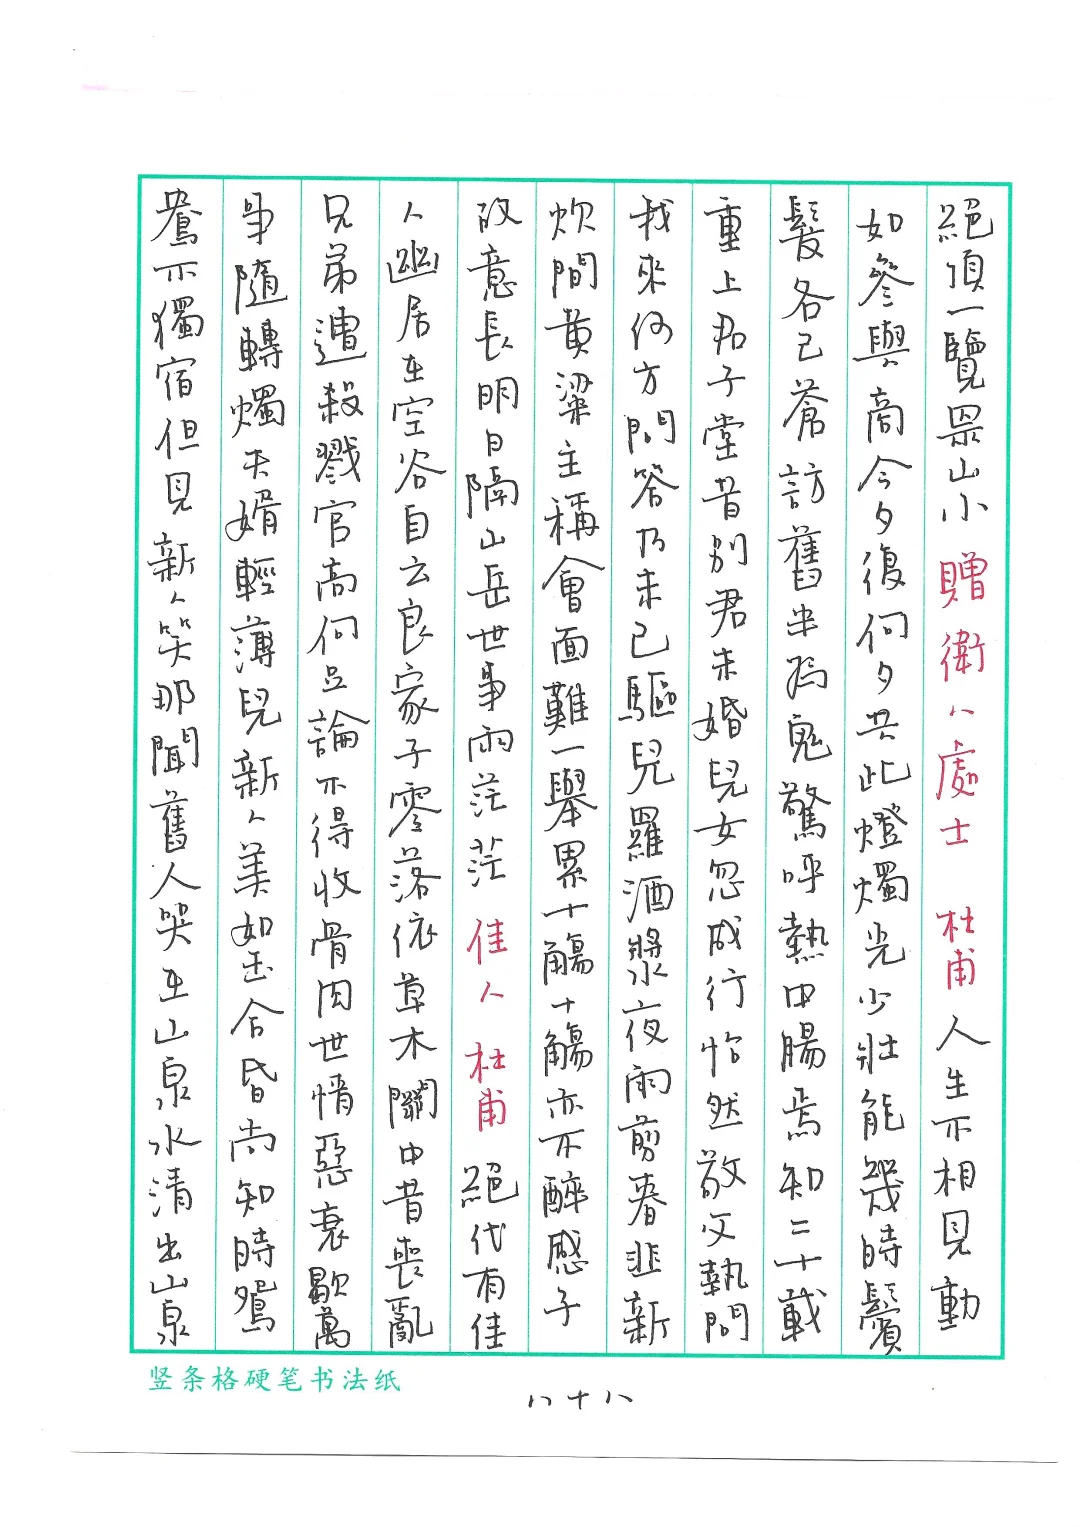 絕頂一覽眾山小 贈衛八處士 杜甫 人生不相見動
如參與商今夕復何夕共此燈燭光少壯能幾時鬢
髮各已蒼訪舊半為鬼驚呼熱中腸焉知二十載
重上君子堂昔別君未婚兒女忽成行怡然敬父執問
我來何方問答乃未已驅兒羅酒漿夜雨剪春韭新
炊間黃粱主稱會面難一舉累十觴十觴亦不醉感子
故意長明日隔山岳世事兩茫茫 佳人 杜甫 絕代有佳
人幽居在空谷自云良家子零落依草木關中昔喪亂
兄弟遭殺戮官高何足論不得收骨肉世情惡衰歇萬
事隨轉燭夫婿輕薄兒新人美如玉合昏尚知時鴛
鴦不獨宿但見新人笑那聞舊人哭在山泉水清出山泉
竖条格硬笔书法纸
八十八